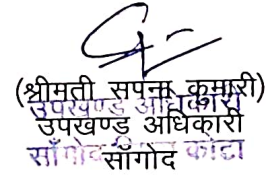 (श्रीमती सपना कुमारी)
उपखण्ड अधिकारी
उपखण्ड अधिकारी
सांगोद
साँगोद कोटा